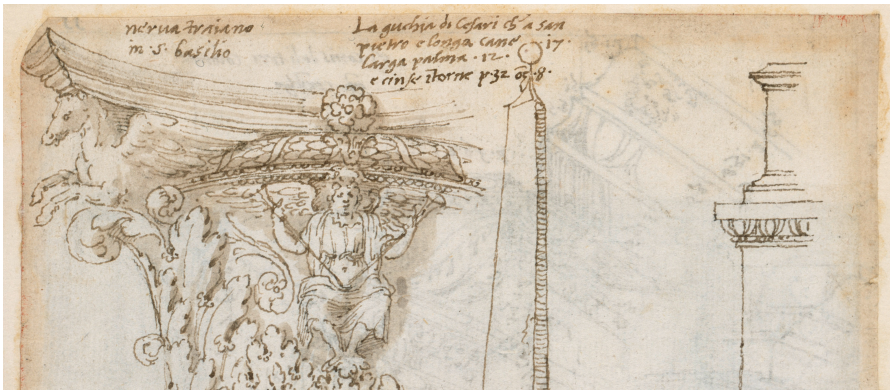 nerva traiano
in .s. basilio
La guchia di Cesari ch'a san
pietro e longa cane .17.
larga palma .12.
e cinse itorne p 32 oc .8.